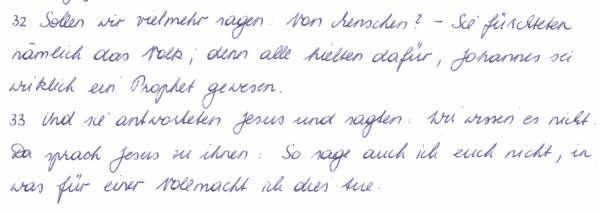 32 Sollen wir vielmehr sagen: Von Menschen? – Sie fürchteten
nämlich das Volk; denn alle hielten dafür, Johannes sei
wirklich ein Prophet gewesen.
33 Und sie antworteten Jesus und sagten: Wir wissen es nicht.
Da sprach Jesus zu ihnen: So sage auch ich euch nicht, in
was für einer Vollmacht ich dies tue.